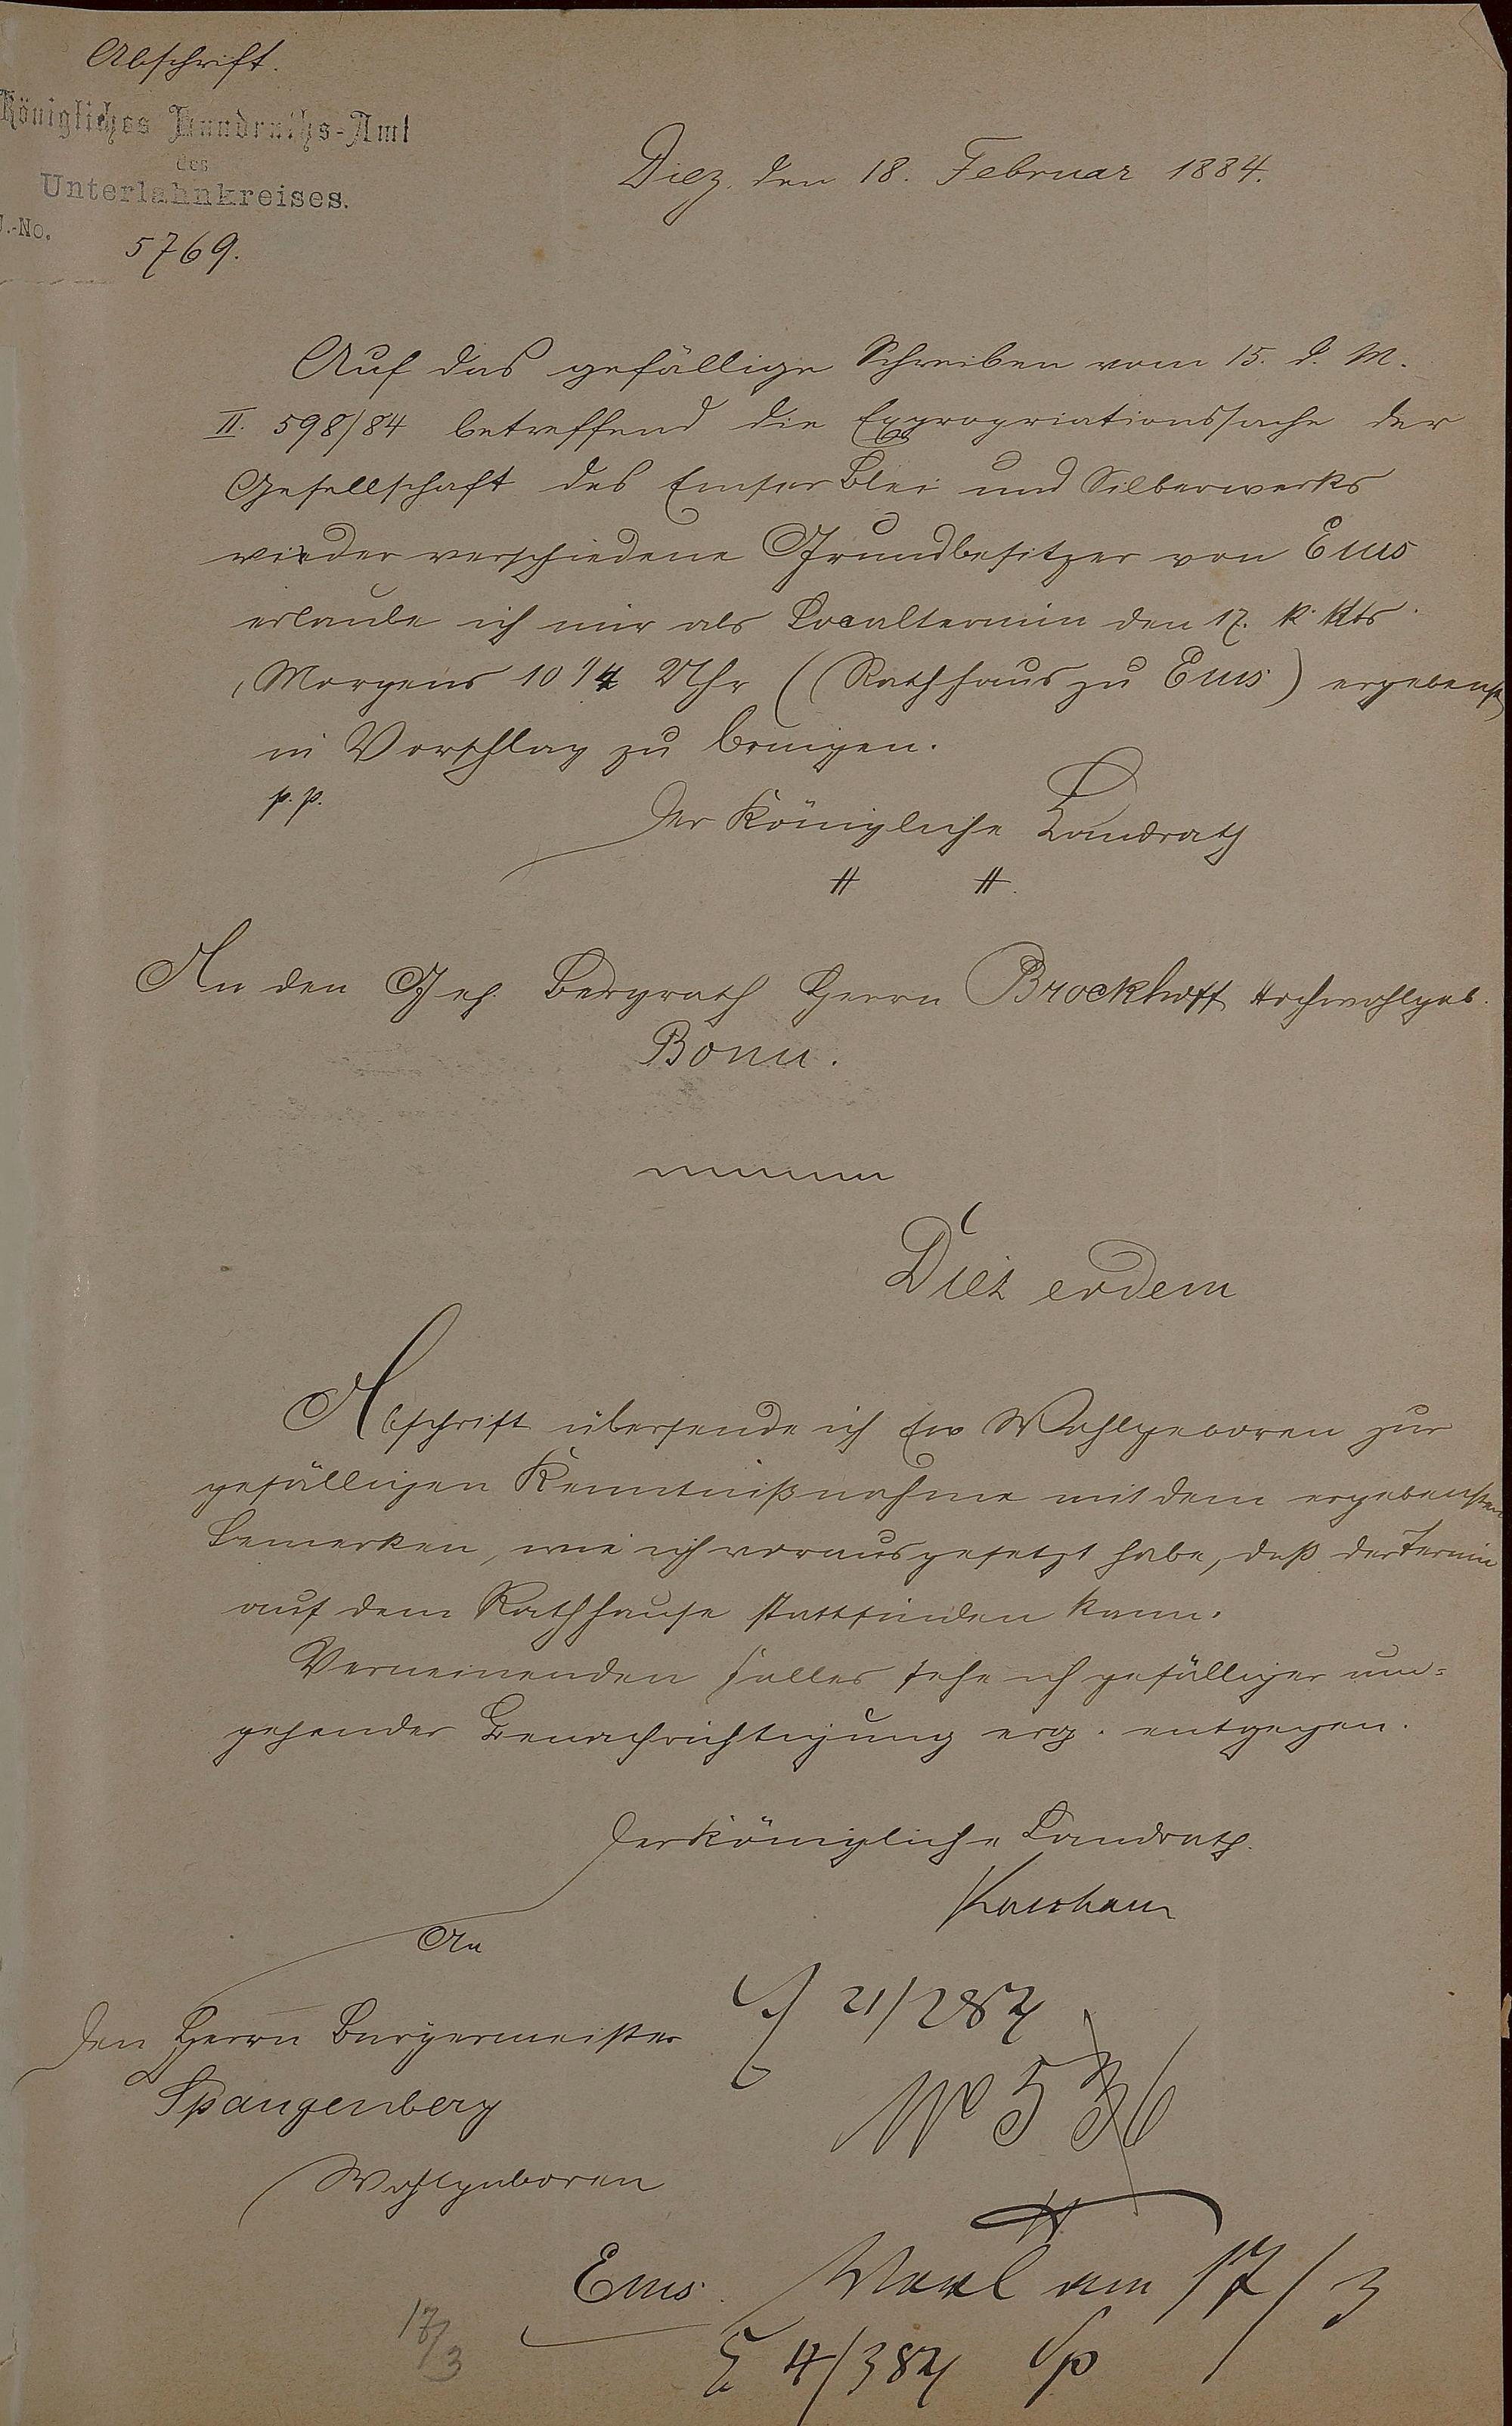 Abschrift.
Königliches Landraths-Amt
des
Unterlahnkreises.
J.-No. 5769.
Diez, den 18. Februar 1884.
Auf das gefällige Schreiben vom 15. d. M.
II. 598/84 betreffend die Expropriationssache der
Gesellschaft des Emser Blei und Silberwerks
wieder verschiedene Grundbesitzer von Ems
erlaube ich mir als Localtermin den 17. k. Mts.
Morgens 10 1/4 Uhr (Rathhaus zu Ems) ergebenst
in Vorschlag zu bringen.
p. p.
Der Königliche Landrath
An den Geh. Bergrath Herrn Brockhoff Hochwohlgeb.
Bonn.
Diez eodem
Abschrift übersende ich Ew Wohlgeboren zur
gefälligen Kenntnißnahme mit dem ergebensten
Bemerken, wie ich vorausgesetzt habe, daß der Termin
auf dem Rathhause stattfinden kann.
Verneinenden Falles sehe ich gefälliger um-
gehender Benachrichtigung erg. entgegen.
Der Königliche Landrath.
An
den Herrn Bürgermeister
Spangenberg
Wohlgeboren
Ems.
21/2 84
No 536
am 17/3
4/3 84 Sp
17/3